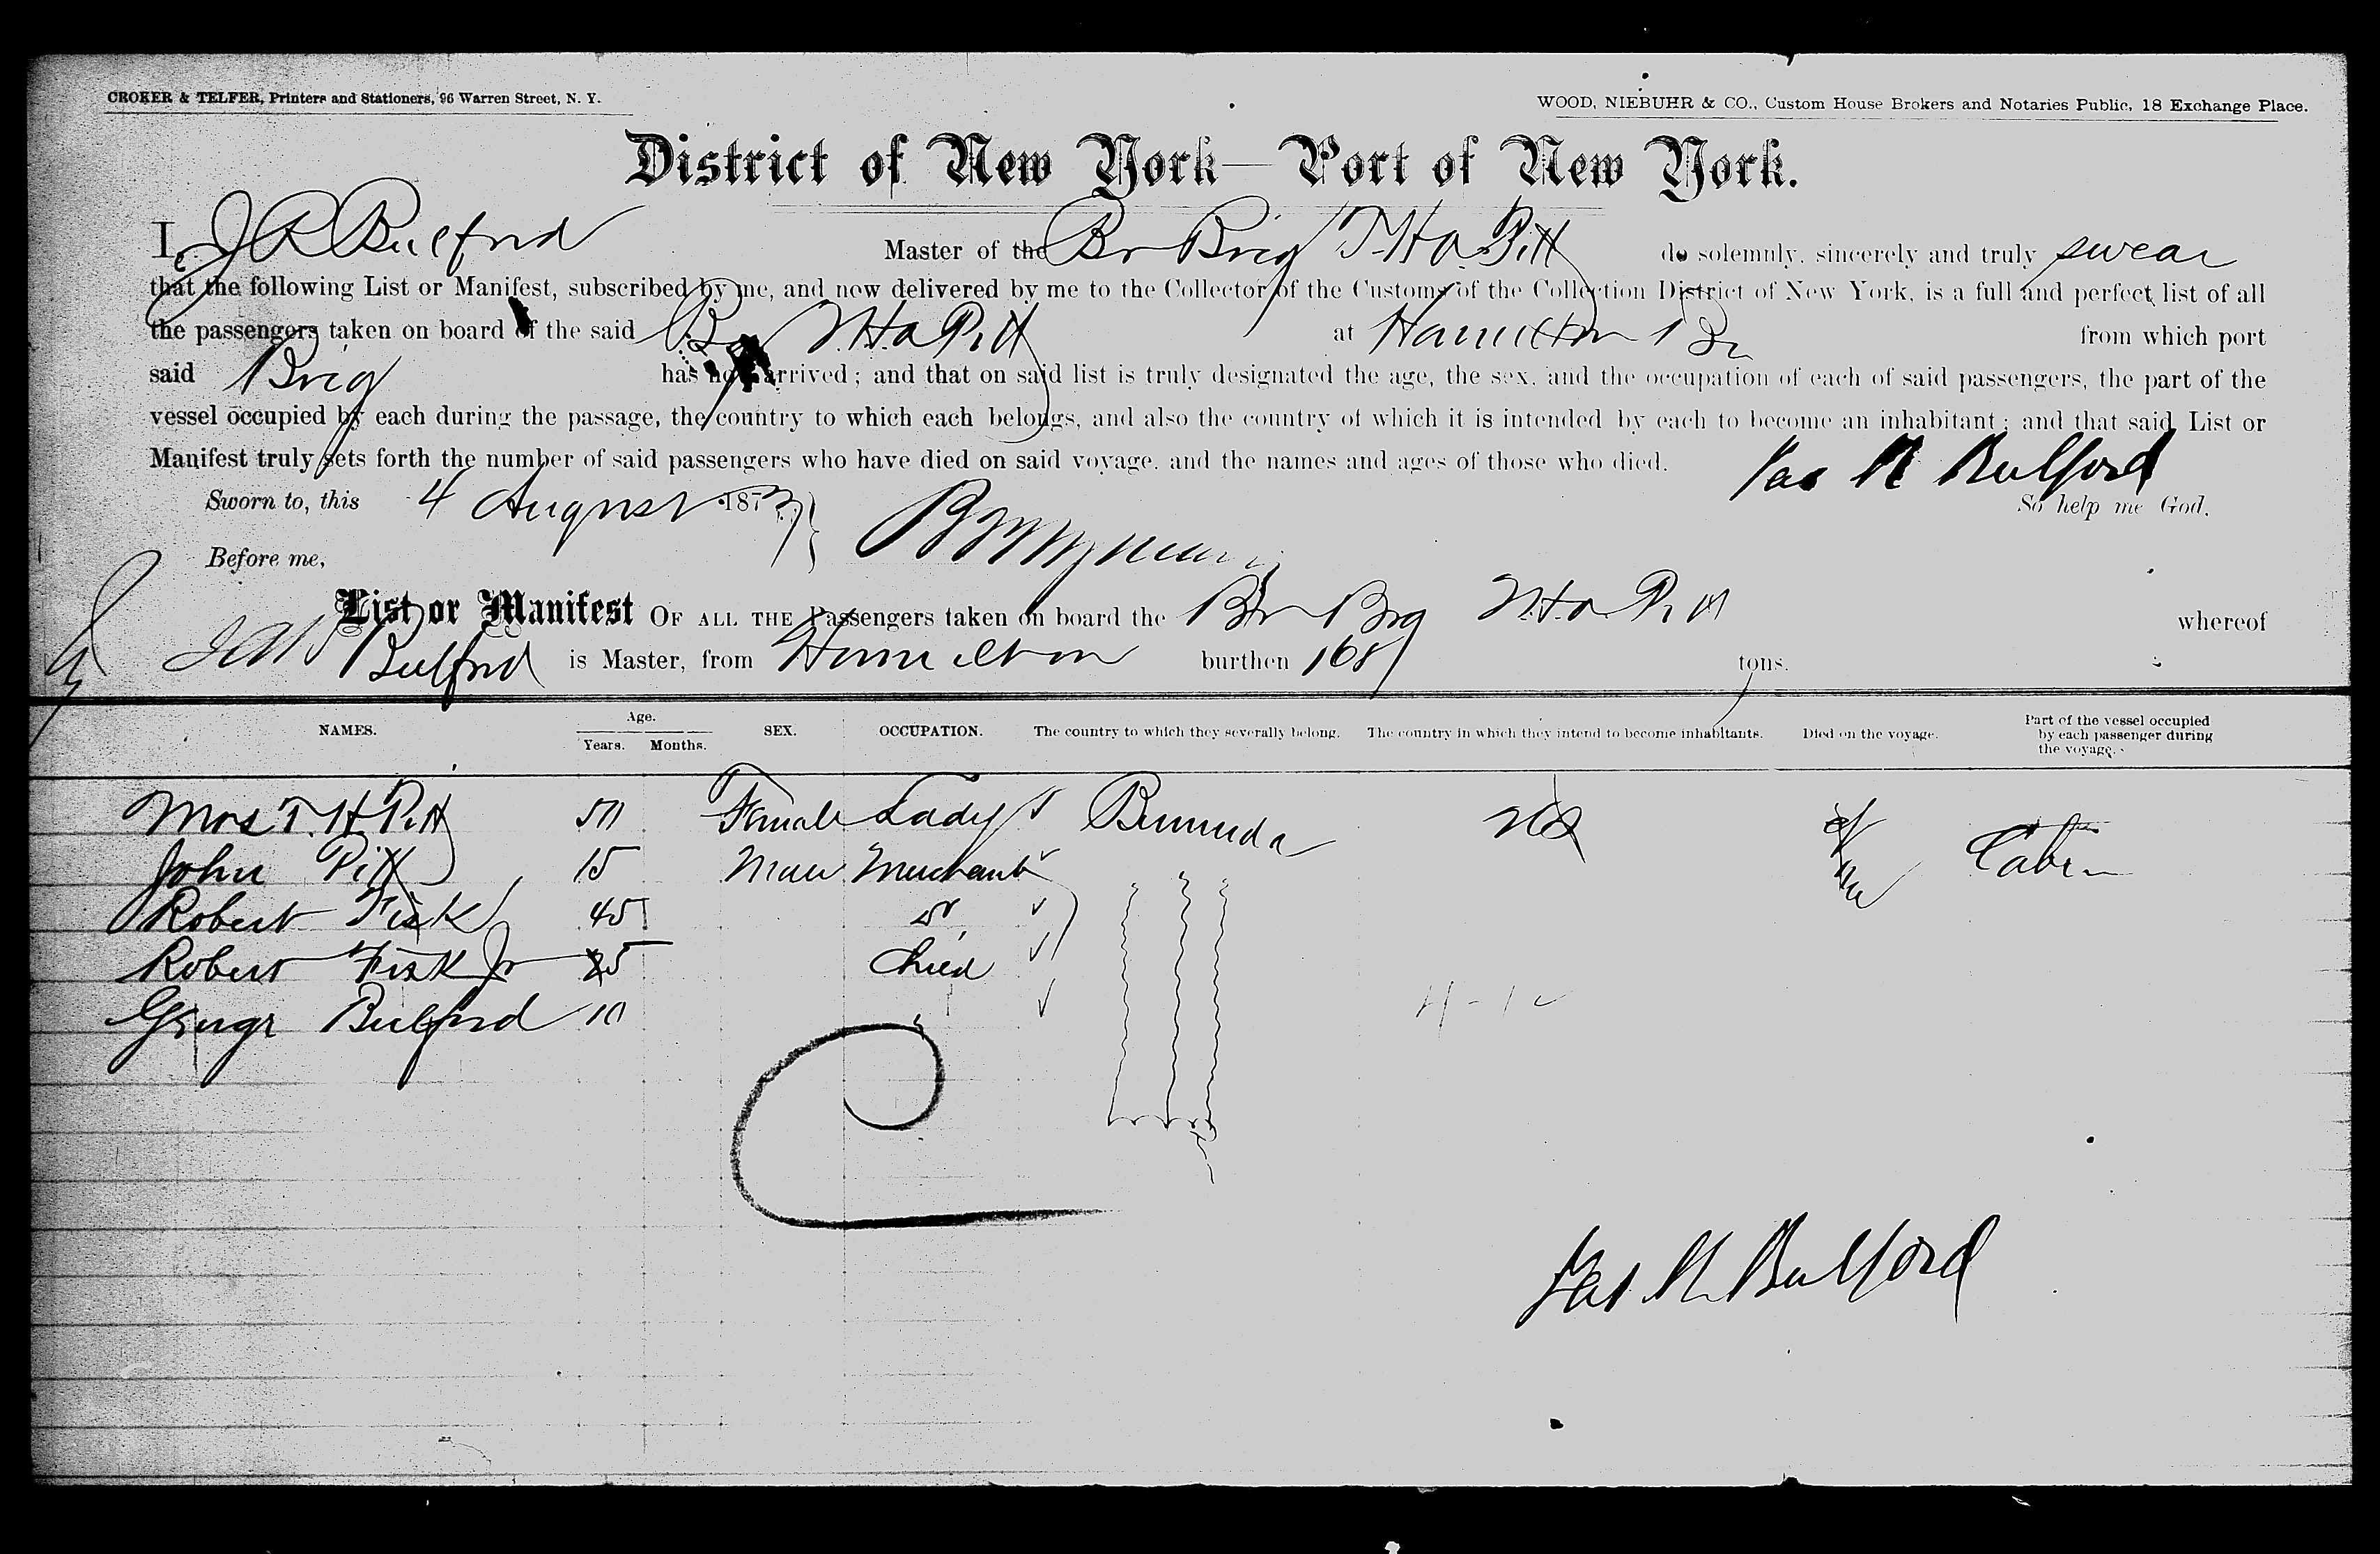 CROKER & TELFER, Printers and Stationers, 96 Warren Street, N. Y.
WOOD, NIEBUHR & CO., Custom House Brokers and Notaries Public, 18 Exchange Place.
District of New York—Port of New York.
I, J R Bulford Master of the Br Brig T. H. A. Pitt do solemnly, sincerely and truly swear
that the following List or Manifest, subscribed by me, and now delivered by me to the Collector of the Customs of the Collection District of New York, is a full and perfect list of all
the passengers taken on board of the said T.H.A Pitt at Hamilton from which port
said Brig has now arrived; and that on said list is truly designated the age, the sex, and the occupation of each of said passengers, the part of the
vessel occupied by each during the passage, the country to which each belongs, and also the country of which it is intended by each to become an inhabitant; and that said List or
Manifest truly sets forth the number of said passengers who have died on said voyage, and the names and ages of those who died.
Jas R Bulford
Sworn to, this 4 August 1873
So help me God.
Before me,
List or Manifest OF ALL THE Passengers taken on board the Br Brg T.H.A Pitt whereof
Bulford is Master, from Hamilton burthen 168 tons.
NAMES. Age. Years. Months. SEX. OCCUPATION. The country to which they severally belong. The country in which they intend to become inhabitants. Died on the voyage. Part of the vessel occupied by each passenger during the voyage.
Mrs T. H. Pitt 50 Female Lady Bermuda Cabin
John Pitt 15 Male Merchant
Robert Fisk 45 do
Robert Fisk Jr 5 Child
George Bulford 10
Jas R Bulford